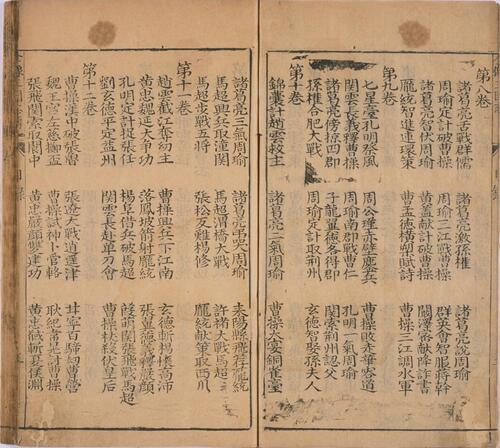 第八卷
諸葛亮舌戰群儒 諸葛亮激孫權 諸葛亮說周瑜
周瑜定計破曹操 周瑜三江戰曹操 群英會智服蔣幹
諸葛亮智伏周瑜 黃蓋獻計破曹操 闞澤密獻降詐書
龐統智進連環策 曹孟德橫槊賦詩 曹操三江調水軍
第九卷
七星臺孔明祭風 周公瑾赤壁鏖兵 曹操敗走華容道
關雲長義釋曹操 周瑜南郡戰曹仁 孔明一氣周瑜
諸葛亮傍掠四郡 子龍翼德各得郡 關索荊州認父
孫權合肥大戰 周瑜定計取荊州 玄德智娶孫夫人
第十卷
錦囊計趙雲救主 諸葛亮二氣周瑜 曹操大宴銅雀臺
諸葛亮三氣周瑜 諸葛亮再哭周瑜 耒陽縣飛荐龐統
馬超興兵取潼關 馬超渭橋大戰 許褚大戰馬超
馬超步戰五將 張松反難楊修 龐統獻策取西川
第十一卷
趙雲截江奪幼主 曹操興兵下江南 玄德斬楊懷高沛
黃忠魏延大爭功 落鳳坡箭射龐統 張翼德義釋嚴顏
孔明定計捉張任 楊阜借兵破馬超 葭萌關張飛戰馬超
劉玄德平定益州 關雲長赴單刀會 曹操杖殺伏皇后
第十二卷
曹操漢中破張魯 張遼大戰逍遙津 甘寧百騎劫曹營
魏王宮左慈擲盃 曹操試神卜管輅 耿紀韋晃討曹操
張飛關索取閬中 黃忠嚴顏雙建功 黃忠馘斬夏侯淵